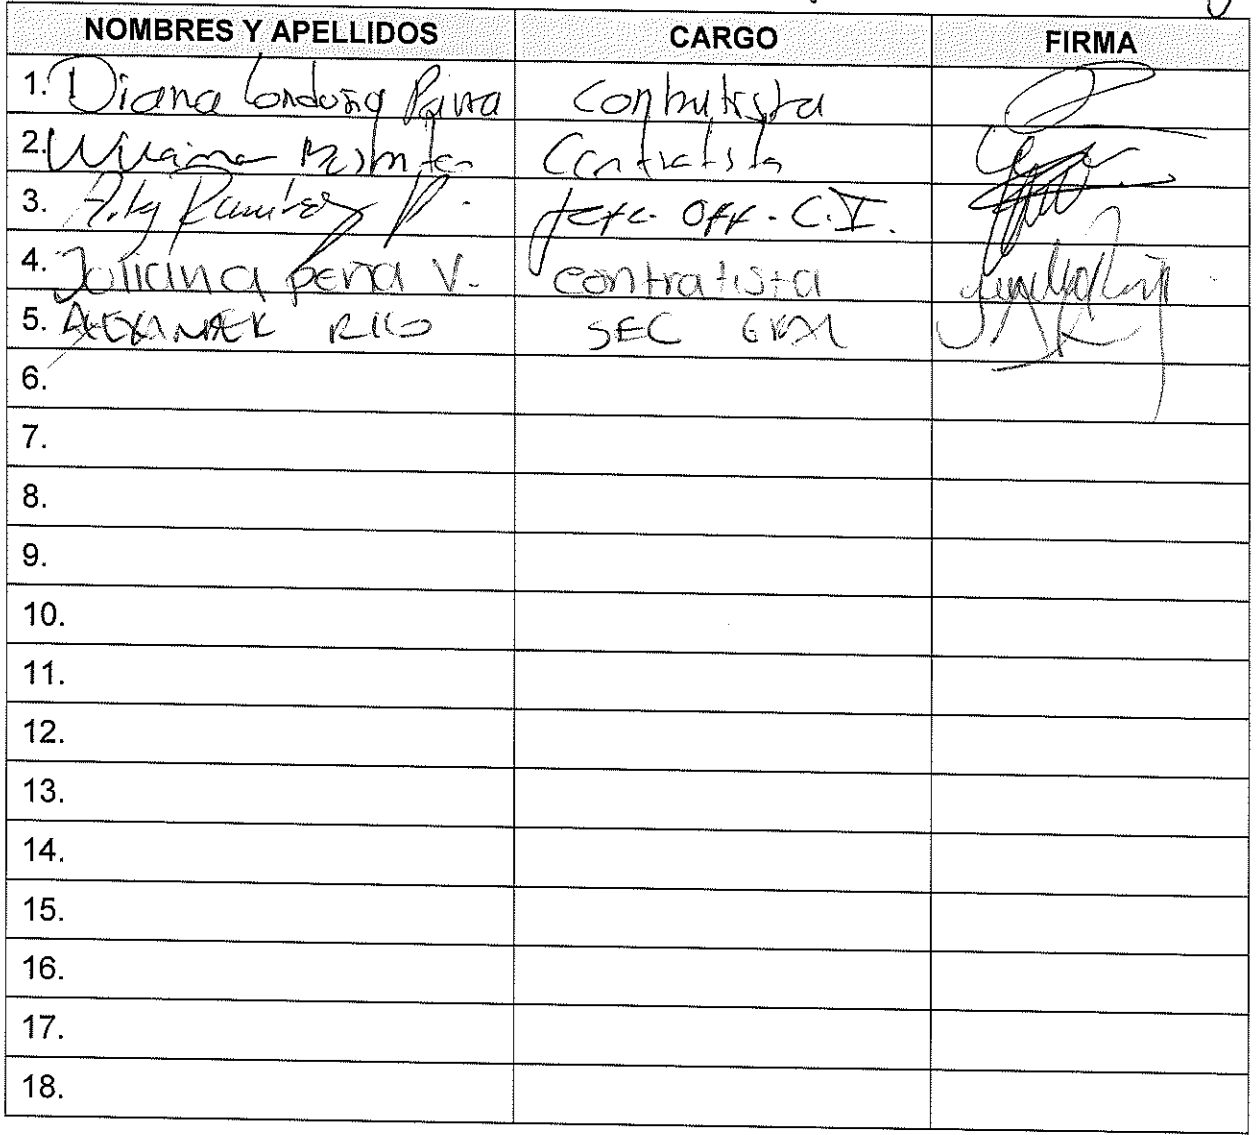 NOMBRES Y APELLIDOS CARGO FIRMA
1. Diana Londoño Contratista
2. Contratista
3. Ramírez P. Jefe Off. C.I.
4. Juliana peña V. contratista
5. ALEXANDER RICO SEC GRAL
6.
7.
8.
9.
10.
11.
12.
13.
14.
15.
16.
17.
18.